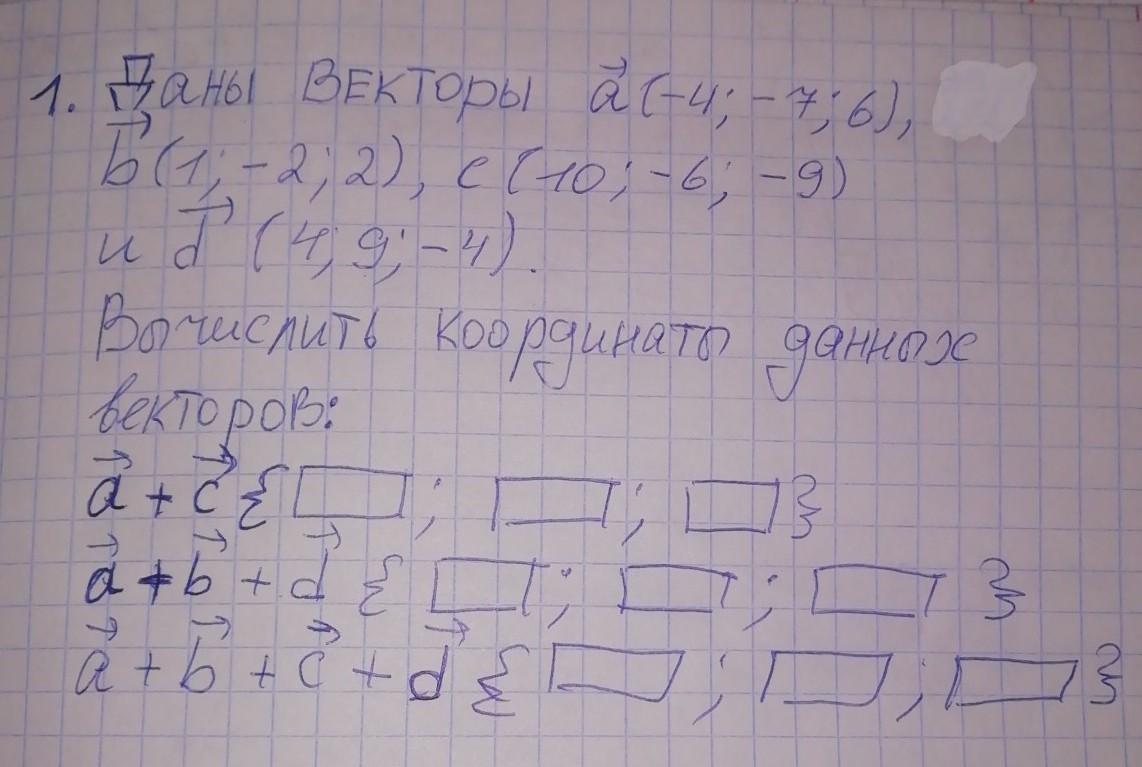 1. Даны векторы a⃗(-4; -7; 6),
b⃗(1; -2; 2), c(10; -6; -9)
и d⃗ (4; 9; -4).
Вычислить координаты данных
векторов:
a⃗ + c⃗ {▭; ▭; ▭}
a⃗ + b⃗ + d⃗ {▭; ▭; ▭}
a⃗ + b⃗ + c⃗ + d⃗ {▭; ▭; ▭}